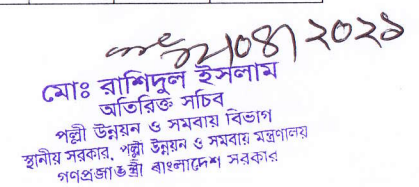 ০৪/২০২১
মোঃ রাশিদুল ইসলাম
অতিরিক্ত সচিব
পল্লী উন্নয়ন ও সমবায় বিভাগ
স্থানীয় সরকার, পল্লী উন্নয়ন ও সমবায় মন্ত্রণালয়
গণপ্রজাতন্ত্রী বাংলাদেশ সরকার